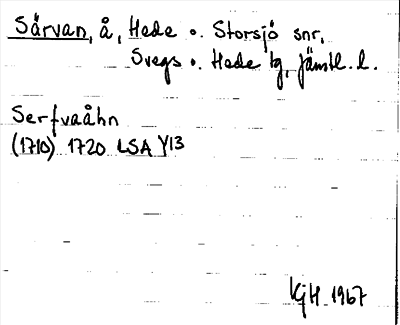 Särvan, å, Hede o. Storsjö snr,
Svegs o. Hede tg, Jämtl. l.
Serfvaåhn
(1710) 1720 LSA Y13
KjH 1967